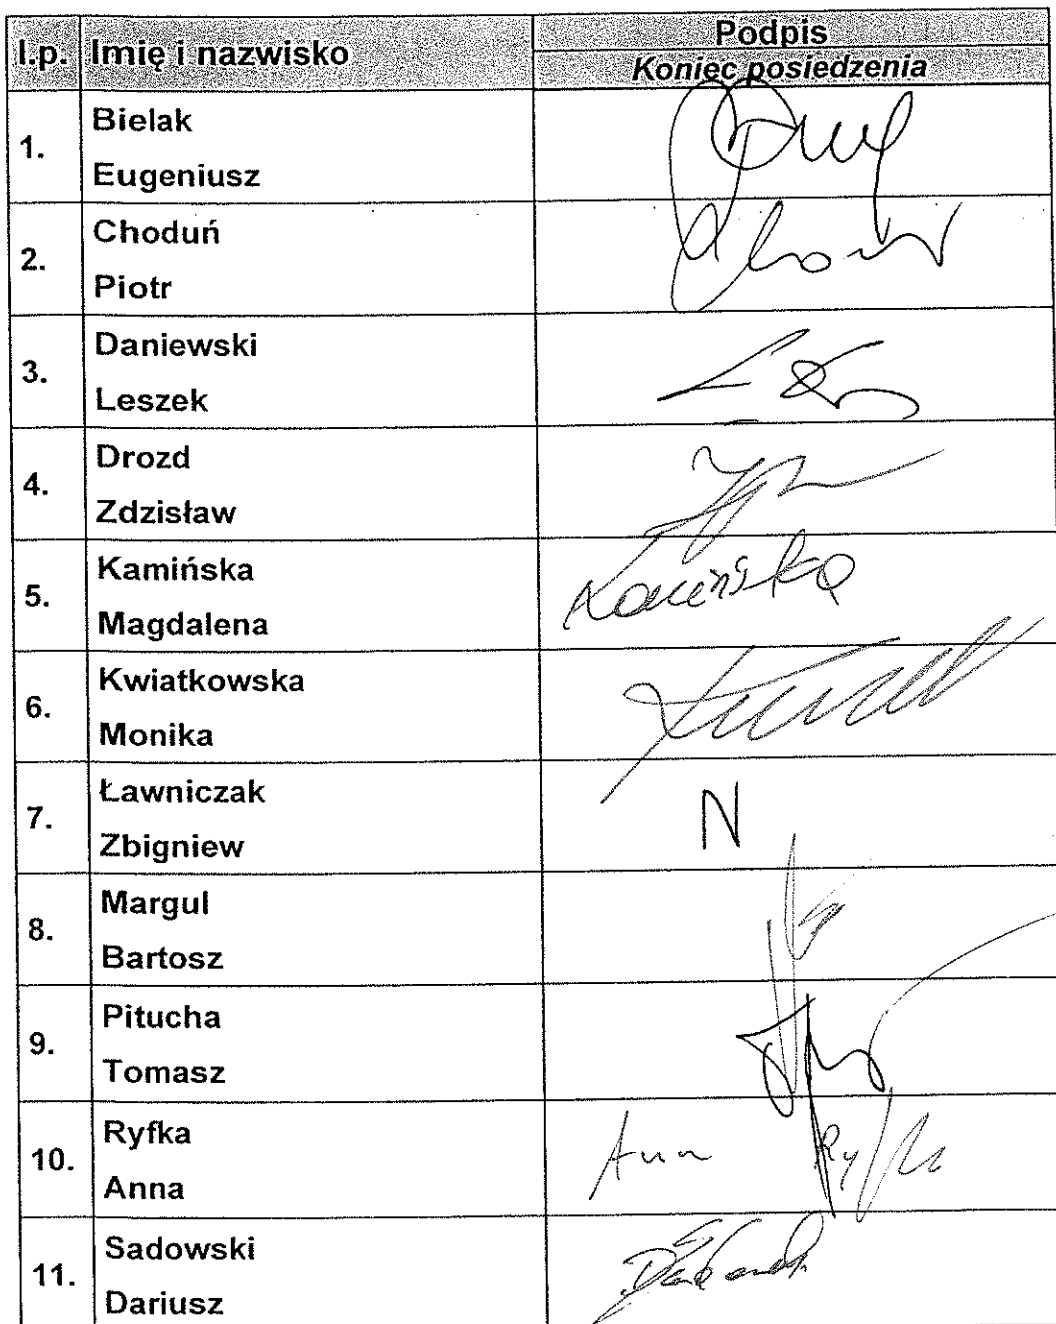 l.p. Imię i nazwisko Podpis
Koniec posiedzenia
1. Bielak
Eugeniusz
2. Choduń
Piotr
3. Daniewski
Leszek
4. Drozd
Zdzisław
5. Kamińska
Magdalena
Kamińska
6. Kwiatkowska
Monika
7. Ławniczak
Zbigniew
N
8. Margul
Bartosz
9. Pitucha
Tomasz
10. Ryfka
Anna
Anna Ryfka
11. Sadowski
Dariusz